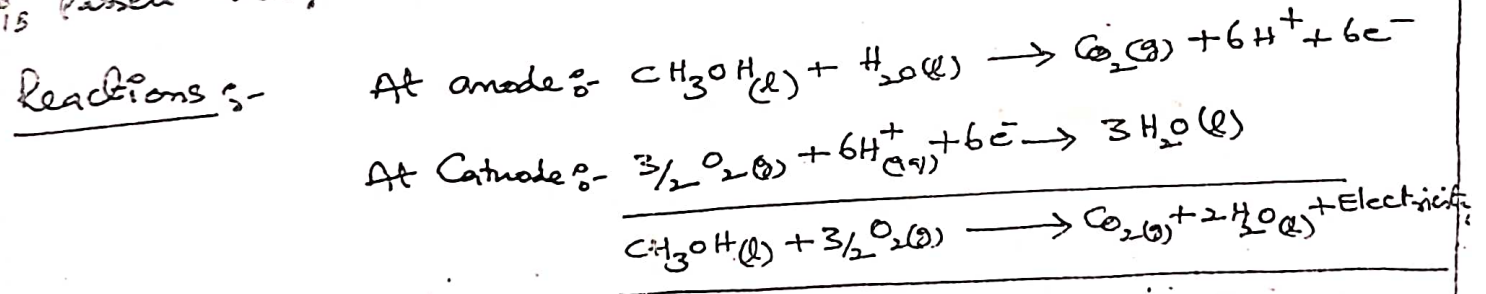 is
Reactions :-
At anode :- CH₃OH(l) + H₂O(l) → CO₂(g) + 6H⁺ + 6e⁻
At Cathode :- 3/2 O₂(g) + 6H⁺(aq) + 6e⁻ → 3H₂O(l)
CH₃OH(l) + 3/2 O₂(g) → CO₂(g) + 2H₂O(l) + Electricity